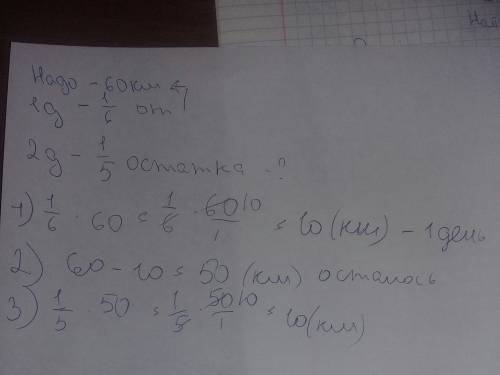 Надо - 60 км
1д - 1/6 от
2д - 1/5 остатка - ?
1) 1/6 · 60 = 1/6 · 60/1 10 = 10 (км) - 1 день
2) 60 - 10 = 50 (км) осталось
3) 1/5 · 50 = 1/5 · 50/1 10 = 10 (км)